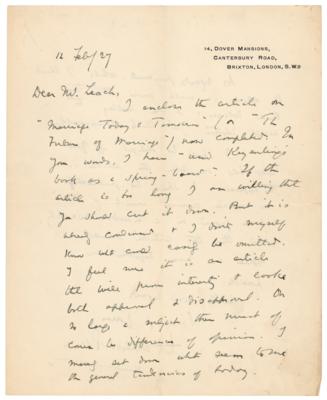 14, DOVER MANSIONS,
CANTERBURY ROAD,
BRIXTON, LONDON, S.W.9
12 Feb/27
Dear Mr. Leach,
I enclose the article on
"Marriage Today & Tomorrow" (or "The
Future of Marriage") now completed. In
your words, I have "used Keyserling's
book as a spring-board". If the
article is too long I am willing that
you should cut it down. But it is
already condensed & I don't myself
know what could easily be omitted.
I feel sure it is an article
that will prove interesting & evoke
both approval & disapproval. On
so large a subject there must of
course be differences of opinion. I
merely set down what seem to me
the general tendencies of today.